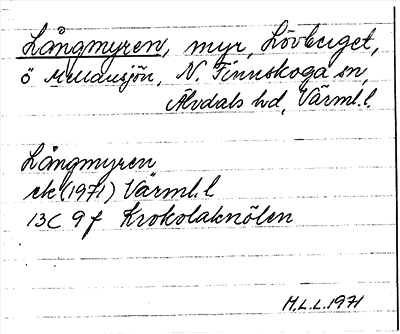 Långmyren, myr, Lövberget,
ö Mellansjön, N. Finnskoga sn,
Älvdals hd, Värml. l.
Långmyren
ek (1971) Värml. l
13C 9f Krokolaknölen
M.L.L. 1971